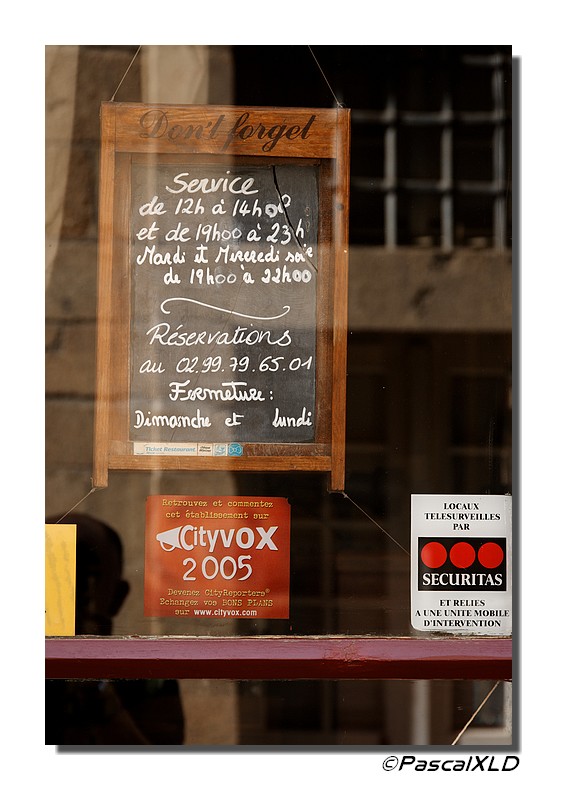 Don't forget
Service
de 12h à 14h00
et de 19h00 à 23h
Mardi et Mercredi soir
de 19h00 à 22h00
Réservations
au 02.99.79.65.01
Fermeture :
Dimanche et lundi
Ticket Restaurant
Retrouvez et commentez
cet établissement sur
Cityvox
2005
Devenez CityReporters®
Echangez vos BONS PLANS
sur www.cityvox.com
LOCAUX
TELESURVEILLES
PAR
SECURITAS
ET RELIES
A UNE UNITE MOBILE
D'INTERVENTION
©PascalXLD